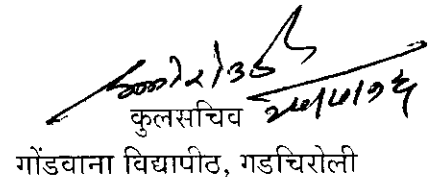 कुलसचिव
गोंडवाना विद्यापीठ, गडचिरोली